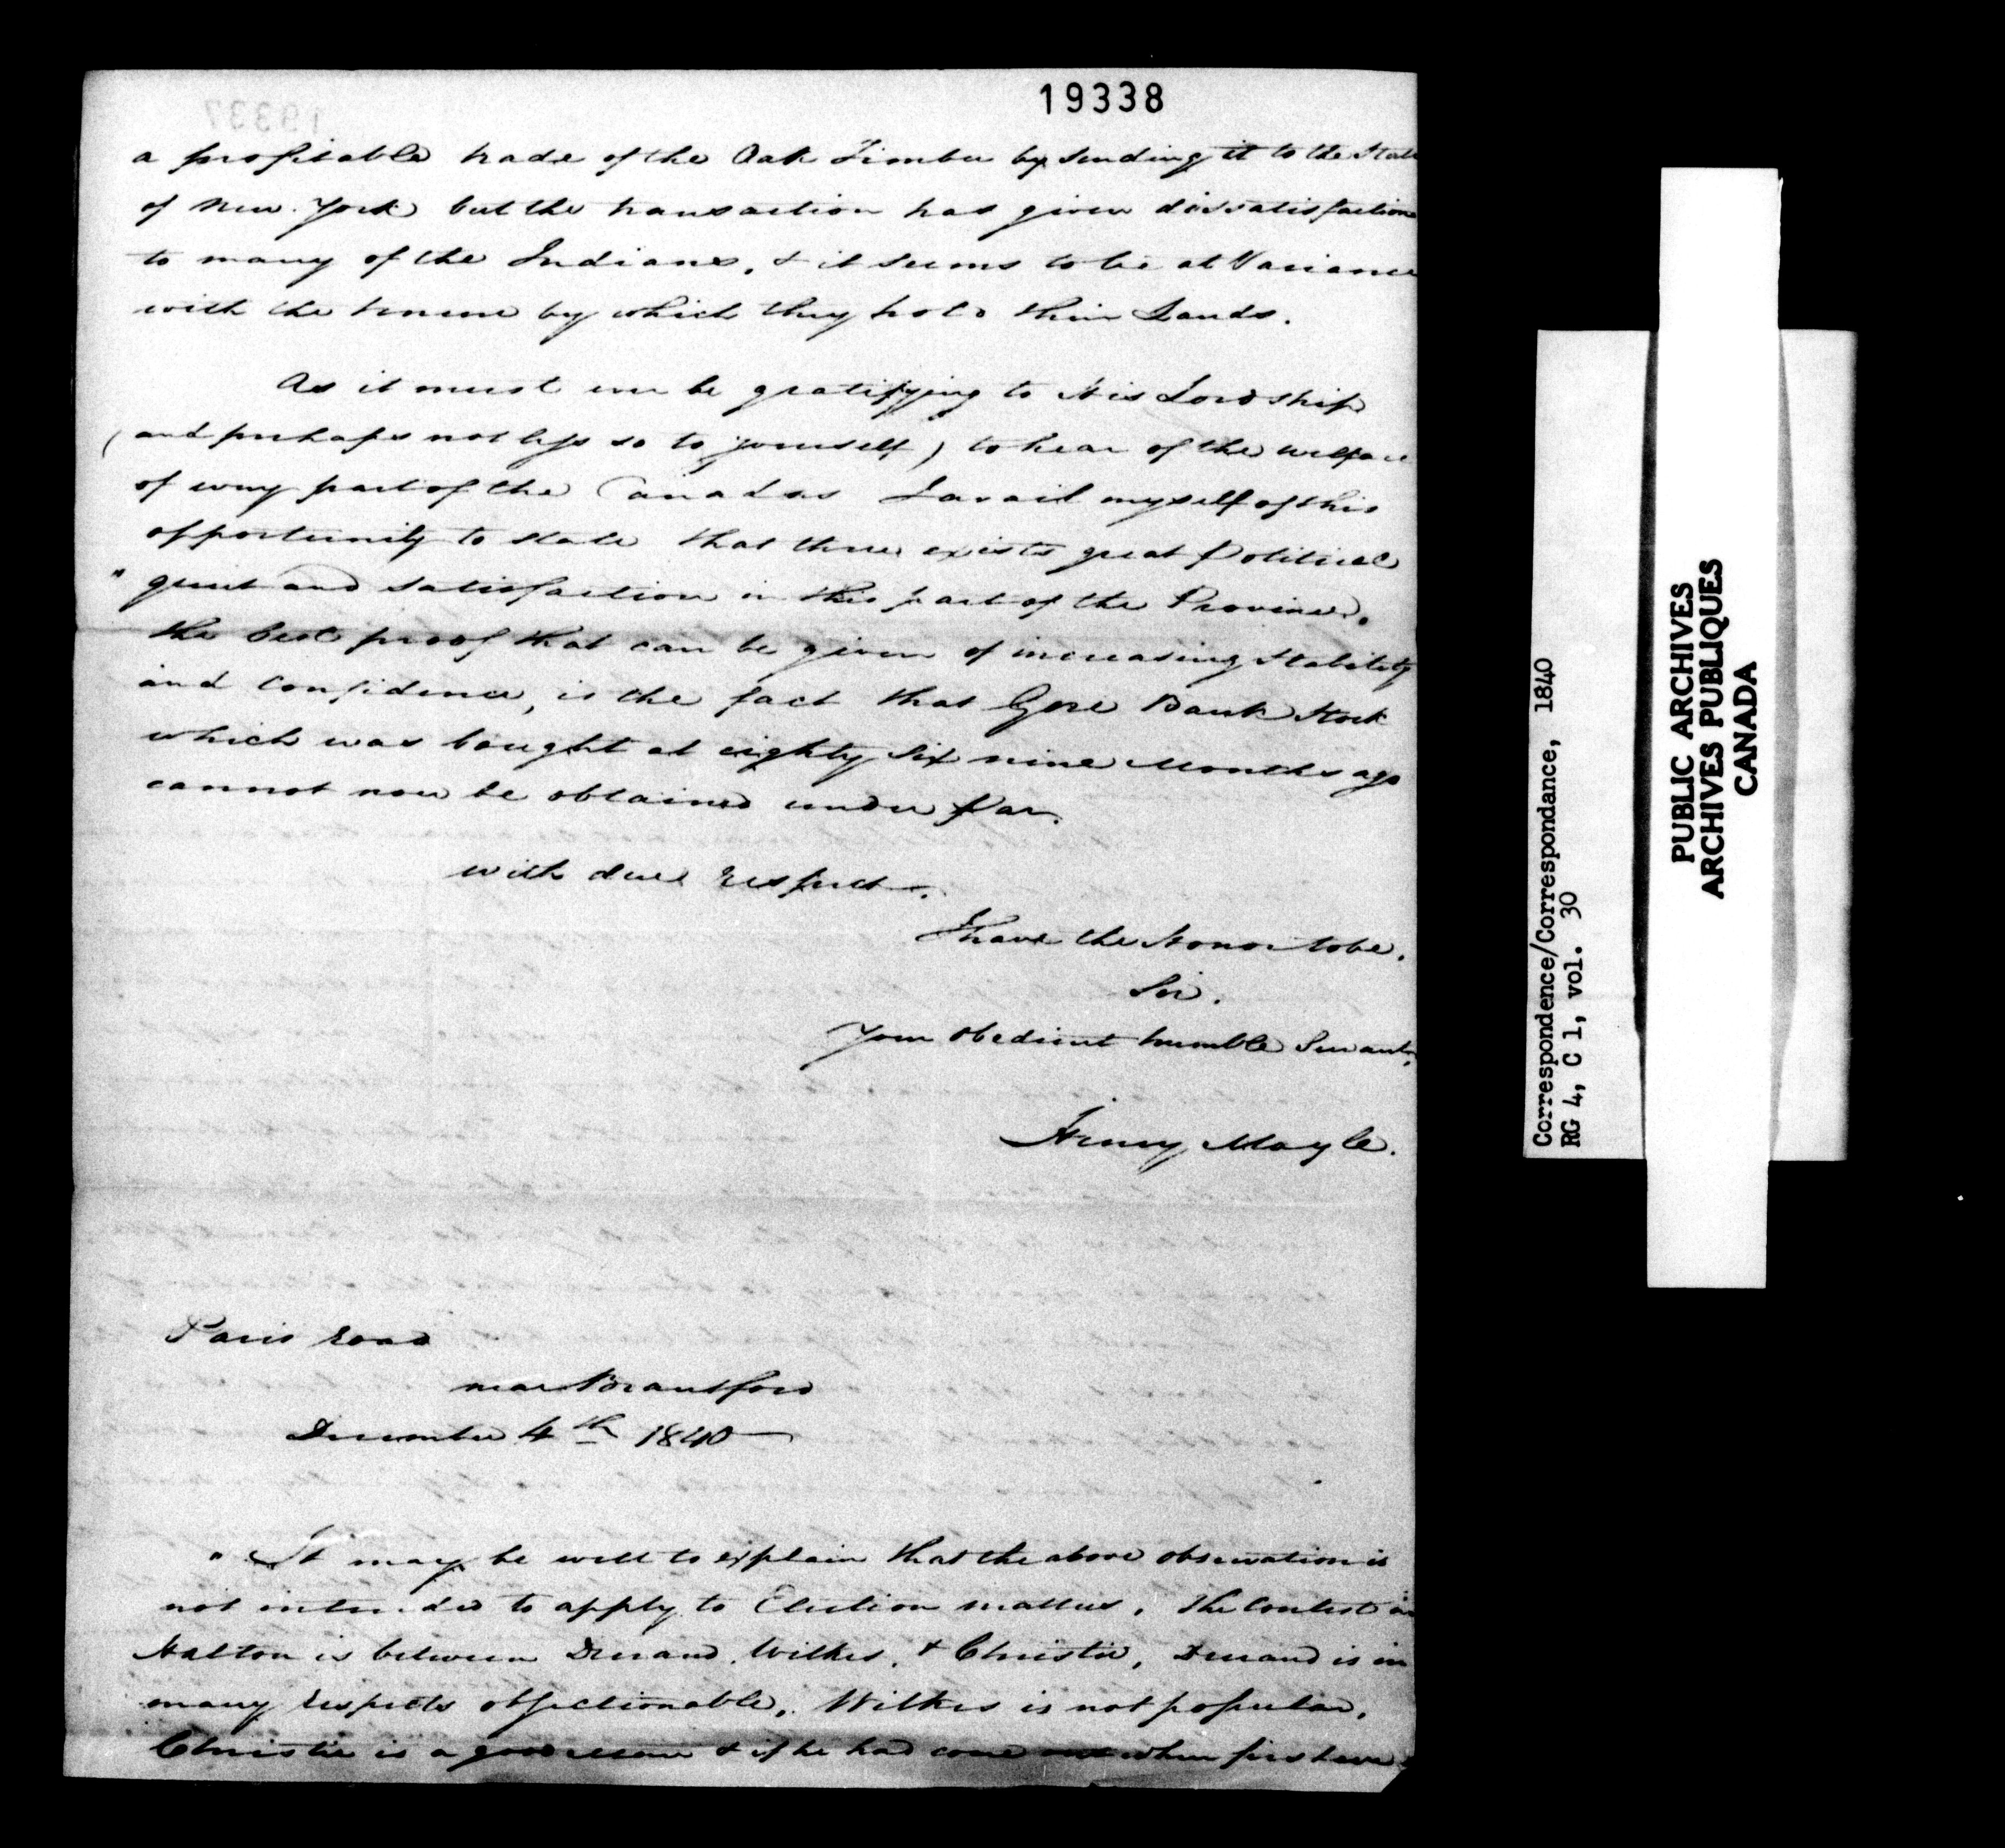 19338
19337
a profitable trade of the Oak Timber by sending it to the State
of New York but the transaction has given dissatisfaction
to many of the Indians, & it seems to be at Variance
with the tenure by which they hold their Lands.
As it must ever be gratifying to His Lordship
(and perhaps not less so to yourself) to hear of the welfare
of every part of the Canadas I avail myself of this
opportunity to state that there exists great Political
" quiet and satisfaction in this part of the Province.
the best proof that can be given of increasing Stability
and confidence, is the fact that Gore Bank Stock
which was bought at eighty six nine Months ago
cannot now be obtained under Par.
with due respect.
I have the Honor to be.
Sir.
Your obedient humble Servant,
Henry Moyle.
Paris road
near Brantford
December 4th 1840
" It may be well to explain that the above observation is
not intended to apply to Election matters. The Contest in
Halton is between Durand, Wilkes, & Christie, Durand is in
many respects objectionable, Wilkes is not popular,
Christie is a good man & if he had come out when first
Correspondence/Correspondance, 1840
RG 4, C 1, vol. 30
PUBLIC ARCHIVES
ARCHIVES PUBLIQUES
CANADA